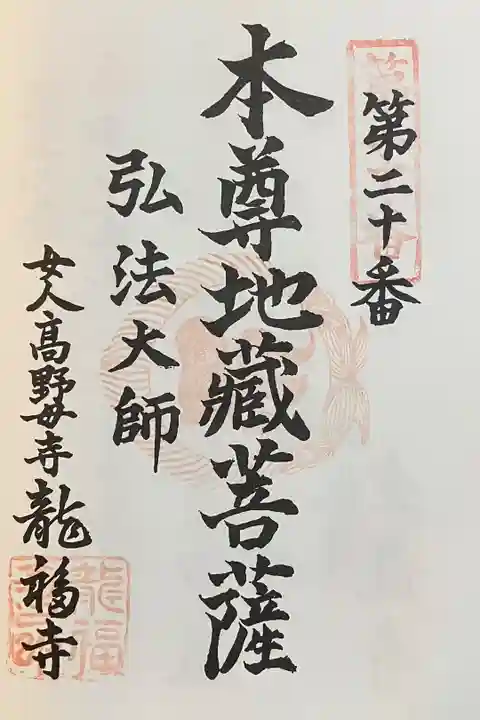 第二十番
本尊地藏菩薩
弘法大師
女人高野母寺龍福寺
龍福